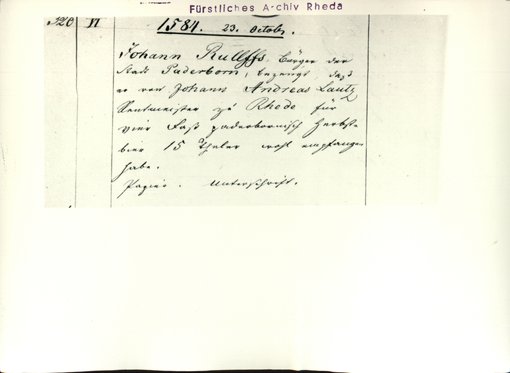 Fürstliches Archiv Rheda
520 N 1584. 23. Octobr.
Johann Rulffs, Bürger der
Stadt Paderborn, bezeugt daß
er von Johann Andreas Lautz
Rentmeister zu Rhede für
vier Faß paderbornisch Herbst
bier 15 Thaler wohl empfangen
habe.
Papier. Unterschrift.